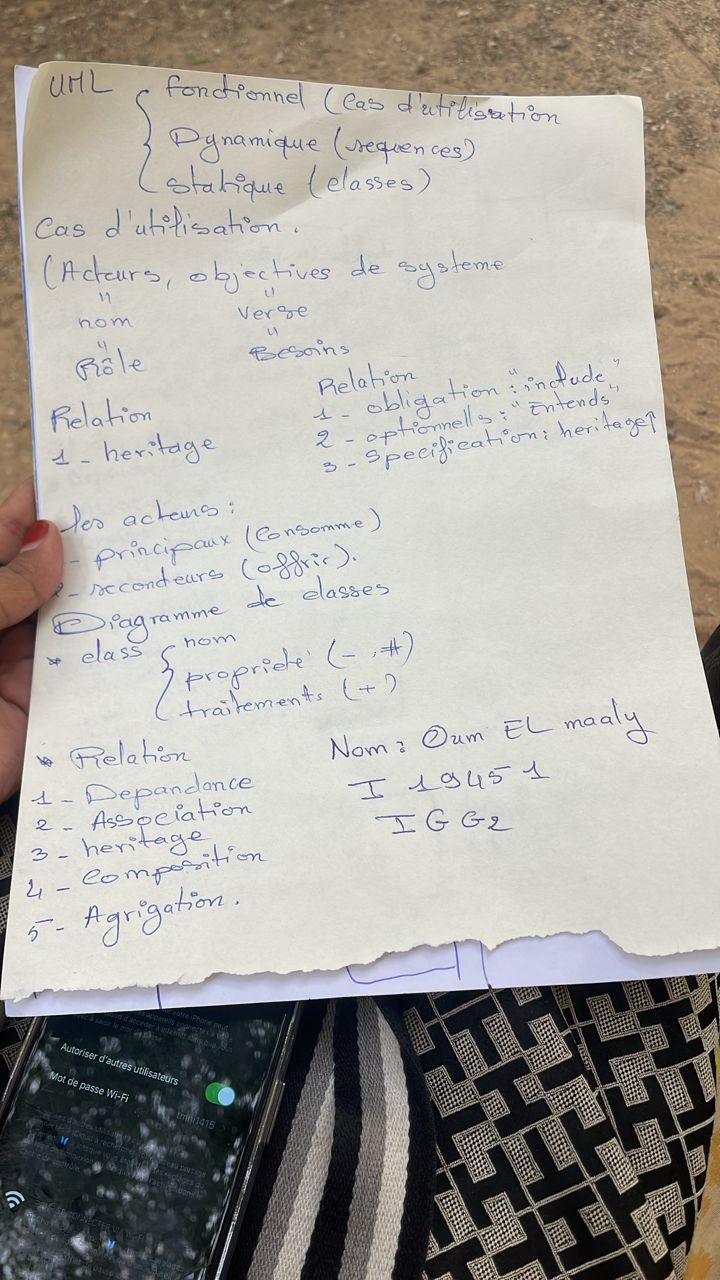 UML { fonctionnel (Cas d'utilisation
Dynamique (sequences)
statique (classes)
Cas d'utilisation.
(Acteurs, objectives de systeme
" "
nom verbe
" "
Rôle Besoins
Relation
1 - heritage
Relation
1 - obligation : "include"
2 - optionnells : "Entends"
3 - Specification : heritage↑
les acteurs :
- principaux (Consomme)
2 - secondeurs (offrir).
Diagramme de classes
* class { nom
propriete (- , #)
traitements (+)
* Relation
1 - Dependance
2 - Association
3 - heritage
4 - Composition
5 - Agrigation.
Nom : Oum EL maaly
I 19451
IG G2
Autoriser d'autres utilisateurs
Mot de passe Wi-Fi